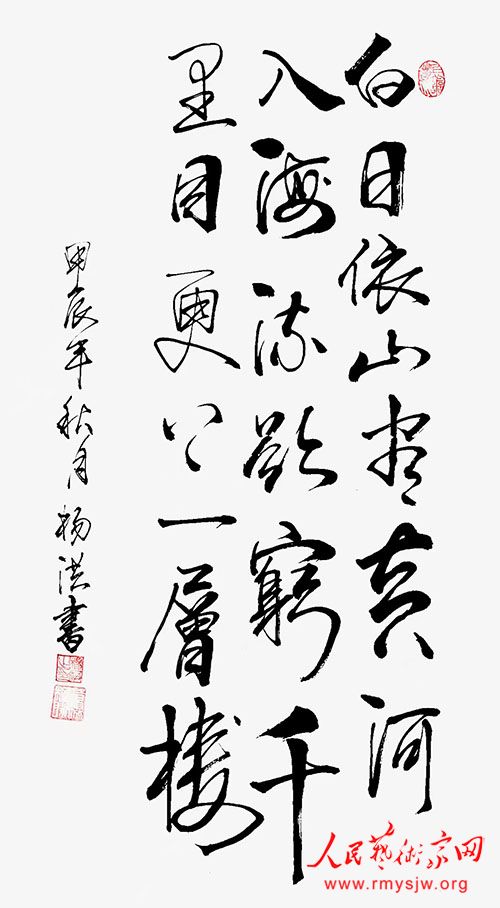 白日依山尽黄河
入海流欲穷千
里目更上一層楼
甲辰年秋月杨洪書
人民藝術家网
www.rmysjw.org